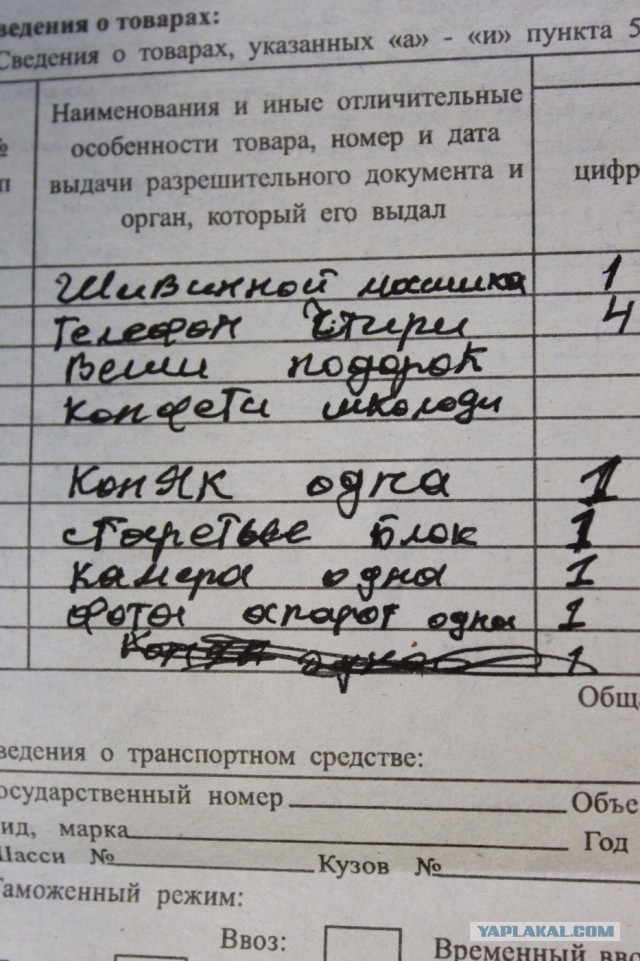 ведения о товарах:
Сведения о товарах, указанных «а» - «и» пункта 5
№
п
Наименования и иные отличительные
особенности товара, номер и дата
выдачи разрешительного документа и
орган, который его выдал
цифр
Шивинной машинка 1
Телефон Чтири 4
Вещи подорок
Конфети школоди
Коняк одна 1
старетьве блок 1
камера одна 1
фото апарот одна 1
1
Обща
ведения о транспортном средстве:
осударственный номер Объе
ид, марка Год
Шасси № Кузов №
Таможенный режим:
Ввоз:
Временный вво
YAPLAKAL.COM